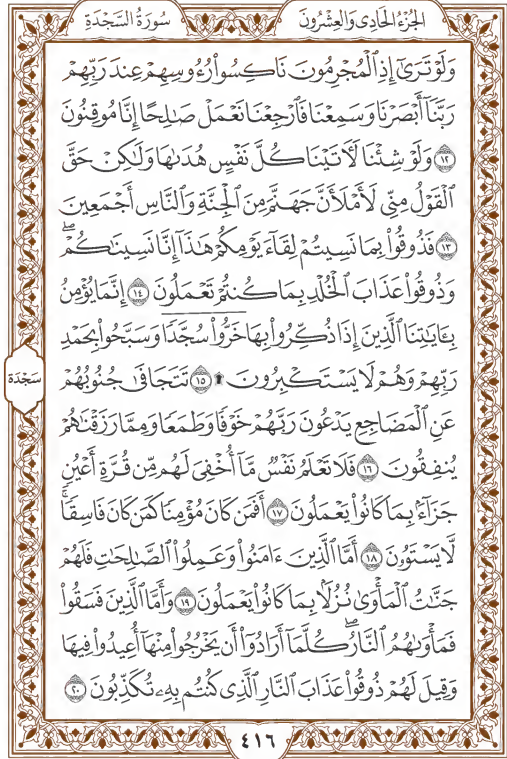 الجُزْءُ الحَادِى وَالعِشْرُونَ
سُورَةُ السَّجْدَةِ
وَلَوْ تَرَىٰٓ إِذِ ٱلْمُجْرِمُونَ نَاكِسُوا۟ رُءُوسِهِمْ عِندَ رَبِّهِمْ
رَبَّنَآ أَبْصَرْنَا وَسَمِعْنَا فَٱرْجِعْنَا نَعْمَلْ صَـٰلِحًا إِنَّا مُوقِنُونَ
١٢ وَلَوْ شِئْنَا لَـَٔاتَيْنَا كُلَّ نَفْسٍ هُدَىٰهَا وَلَـٰكِنْ حَقَّ
ٱلْقَوْلُ مِنِّى لَأَمْلَأَنَّ جَهَنَّمَ مِنَ ٱلْجِنَّةِ وَٱلنَّاسِ أَجْمَعِينَ
١٣ فَذُوقُوا۟ بِمَا نَسِيتُمْ لِقَآءَ يَوْمِكُمْ هَـٰذَآ إِنَّا نَسِينَـٰكُمْ ۖ
وَذُوقُوا۟ عَذَابَ ٱلْخُلْدِ بِمَا كُنتُمْ تَعْمَلُونَ ١٤ إِنَّمَا يُؤْمِنُ
بِـَٔايَـٰتِنَا ٱلَّذِينَ إِذَا ذُكِّرُوا۟ بِهَا خَرُّوا۟ سُجَّدًا وَسَبَّحُوا۟ بِحَمْدِ
رَبِّهِمْ وَهُمْ لَا يَسْتَكْبِرُونَ ۩ ١٥ تَتَجَافَىٰ جُنُوبُهُمْ
سَجْدَة
عَنِ ٱلْمَضَاجِعِ يَدْعُونَ رَبَّهُمْ خَوْفًا وَطَمَعًا وَمِمَّا رَزَقْنَـٰهُمْ
يُنفِقُونَ ١٦ فَلَا تَعْلَمُ نَفْسٌ مَّآ أُخْفِىَ لَهُم مِّن قُرَّةِ أَعْيُنٍ
جَزَآءًۢ بِمَا كَانُوا۟ يَعْمَلُونَ ١٧ أَفَمَن كَانَ مُؤْمِنًا كَمَن كَانَ فَاسِقًا ۚ
لَّا يَسْتَوُۥنَ ١٨ أَمَّا ٱلَّذِينَ ءَامَنُوا۟ وَعَمِلُوا۟ ٱلصَّـٰلِحَـٰتِ فَلَهُمْ
جَنَّـٰتُ ٱلْمَأْوَىٰ نُزُلًۢا بِمَا كَانُوا۟ يَعْمَلُونَ ١٩ وَأَمَّا ٱلَّذِينَ فَسَقُوا۟
فَمَأْوَىٰهُمُ ٱلنَّارُ ۖ كُلَّمَآ أَرَادُوٓا۟ أَن يَخْرُجُوا۟ مِنْهَآ أُعِيدُوا۟ فِيهَا
وَقِيلَ لَهُمْ ذُوقُوا۟ عَذَابَ ٱلنَّارِ ٱلَّذِى كُنتُم بِهِۦ تُكَذِّبُونَ ٢٠
٤١٦